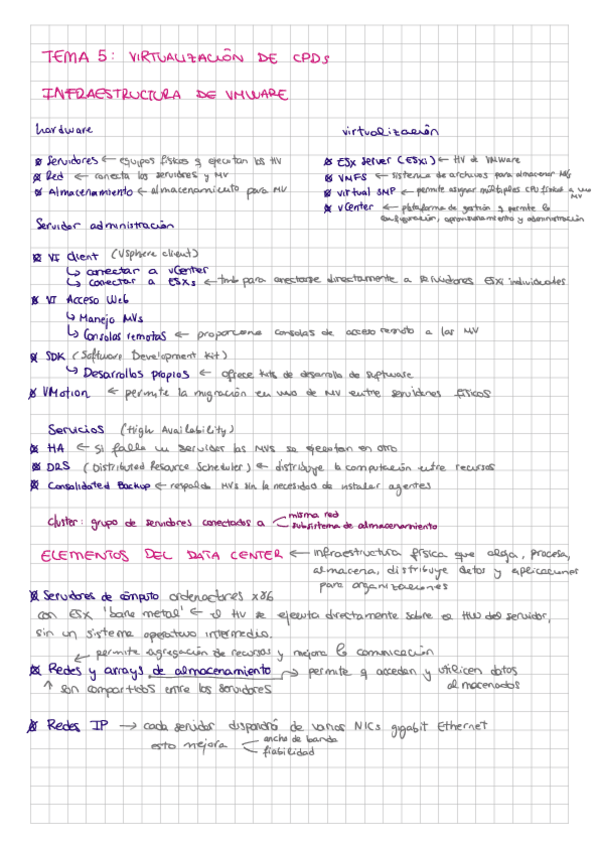 TEMA 5: VIRTUALIZACIÓN DE CPDs
INFRAESTRUCTURA DE VMWARE
hardware
Servidores ← equipos físicos q ejecutan los HV
Red ← conecta los servidores y MV
Almacenamiento ← almacenamiento para MV
virtualización
ESX Server (ESXi) ← HV de VMware
VMFS ← sistema de archivos para almacenar
Virtual SMP ← permite asignar múltiples CPU físicas a una MV
vCenter ← plataforma de gestión q permite la
configuración, aprovisionamiento y administración
Servidor administración
VI Client (VSphere client)
↳ conectar a vCenter
↳ conectar a ESXs ← tmb para conectarse directamente a servidores ESXi individuales
VI Acceso Web
↳ Manejo MVs
↳ Consolas remotas ← proporciona consolas de acceso remoto a las MV
SDK (Software Development Kit)
↳ Desarrollos propios ← ofrece kits de desarrollo de software
VMotion ← permite la migración en uso de MV entre servidores físicos
Servicios (High Availability)
HA ← si falla un servidor las MVs se ejecutan en otro
DRS (Distributed Resource Scheduler) ← distribuye la computación entre recursos
Consolidated Backup ← respalda MVs sin la necesidad de instalar agentes
cluster: grupo de servidores conectados a misma red
subsistema de almacenamiento
ELEMENTOS DEL DATA CENTER ← infraestructura física que aloja, procesa,
almacena, distribuye datos y aplicaciones
para organizaciones
Servidores de cómputo ordenadores x86
con ESX 'bare metal' ← el HV se ejecuta directamente sobre el HW del servidor,
sin un sistema operativo intermedio.
permite agregación de recursos y mejora la comunicación
Redes y arrays de almacenamiento → permite q accedan y utilicen datos
almacenados
↑ son compartidos entre los servidores
Redes IP → cada servidor dispondrá de varios NICs gigabit Ethernet
esto mejora ancho de banda
fiabilidad